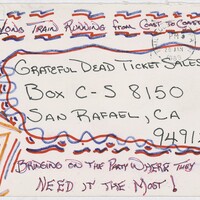 Long Train Running from Coast to Coast
Grateful Dead Ticket Sales
Box C-S 8150
San Rafael, CA
94912
Bringing on the Party Where They
Need it the Most!